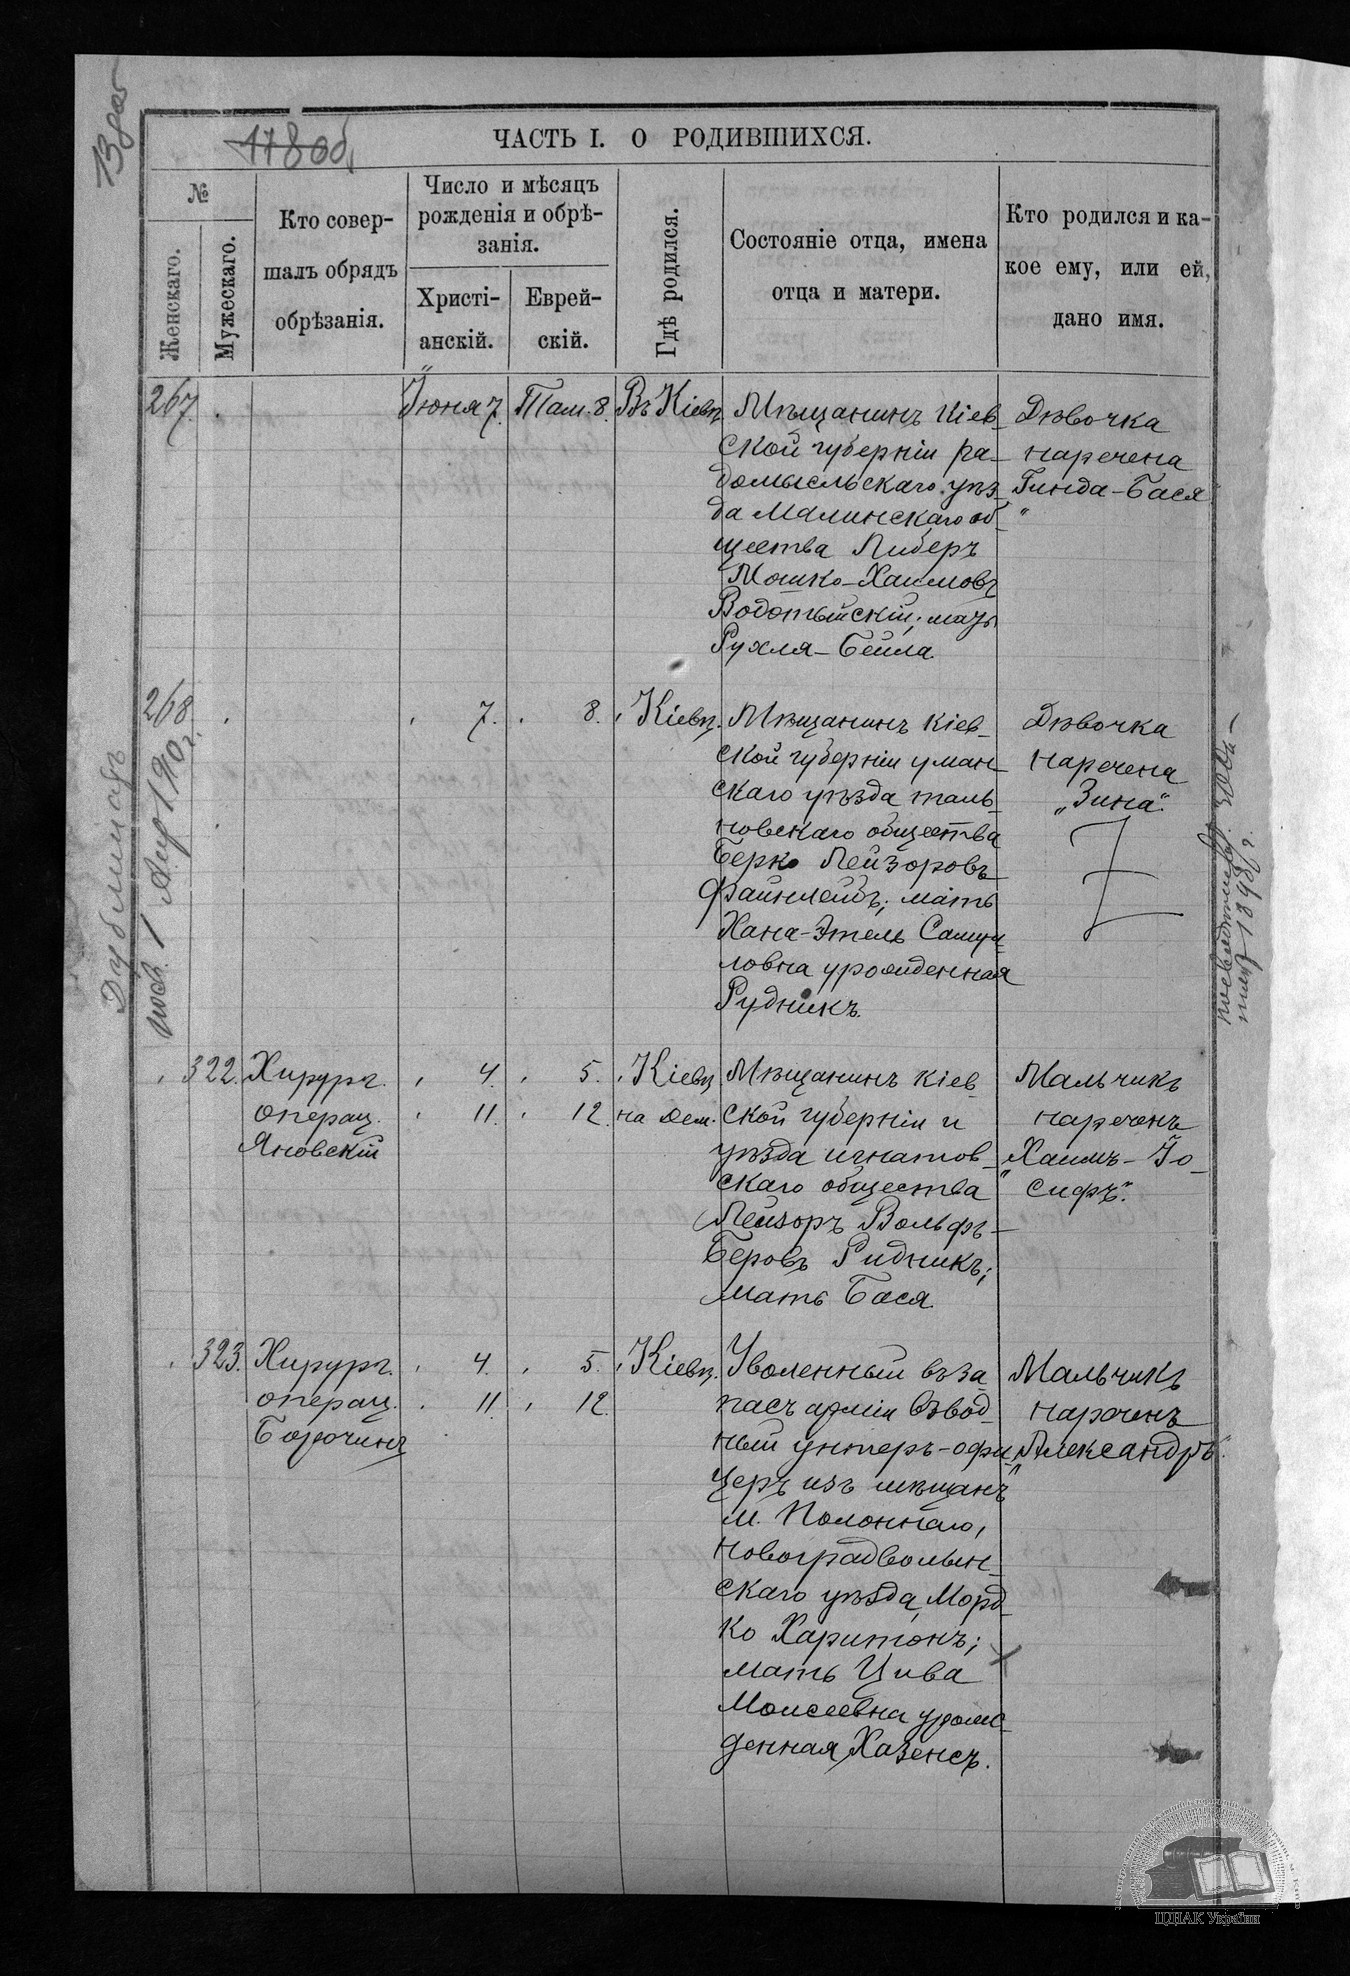 178 об.
ЧАСТЬ I. О РОДИВШИХСЯ.
№
Женскаго.
Мужескаго.
Кто совер-
шалъ обрядъ
обрѣзанія.
Число и мѣсяцъ
рожденія и обрѣ-
занія.
Христі-
анскій.
Еврей-
скій.
Гдѣ родился.
Состояніе отца, имена
отца и матери.
Кто родился и ка-
кое ему, или ей,
дано имя.
267.
Іюня 7.
Там. 8.
Въ Кіевѣ
Мѣщанинъ Кіев-
ской губерніи ра-
домысльскаго уѣз-
да Малинскаго об-
щества Либеръ
Мошко-Хаимовъ
Водотыйскій; мать
Рухля-Бейла.
Дѣвочка
наречена
Гинда-Бася
"
268
" 7. " 8. " Кіевѣ.
Мѣщанинъ Кіев-
ской губерніи уман-
скаго уѣзда таль-
новскаго общества
Берко Лейзоровъ
Файнлейбъ; мать
Хана-Этель Самуи-
ловна урожденная
Рудникъ.
Дѣвочка
наречена
„Зина“.
Дубликатъ
1 Апр 190 г.
1898 г.
322. Хирург.
операц.
Яновскій
" 4. " 5. " Кіевѣ
" 11. " 12. на Дем.
Мѣщанинъ Кіев
ской губерніи и
уѣзда игнатов-
скаго общества
Лейзоръ Вольфъ-
Беровъ Ридникъ;
мать Бася.
Мальчикъ
нареченъ
„Хаимъ-Іо-
сифъ“.
323. Хирург.
операц.
" 4. " 5. " Кіевѣ.
" 11. " 12.
Уволенный въ за-
пасъ арміи взвод-
ный унтеръ-офи-
церъ изъ мѣщанъ
м. Полоннаго,
новоградволын-
скаго уѣзда, Морд-
ко Харитонъ;
мать Цива
Моисеевна урож-
денная Хазенсъ.
Мальчикъ
нареченъ
„Александръ“.
ЦДІАК України